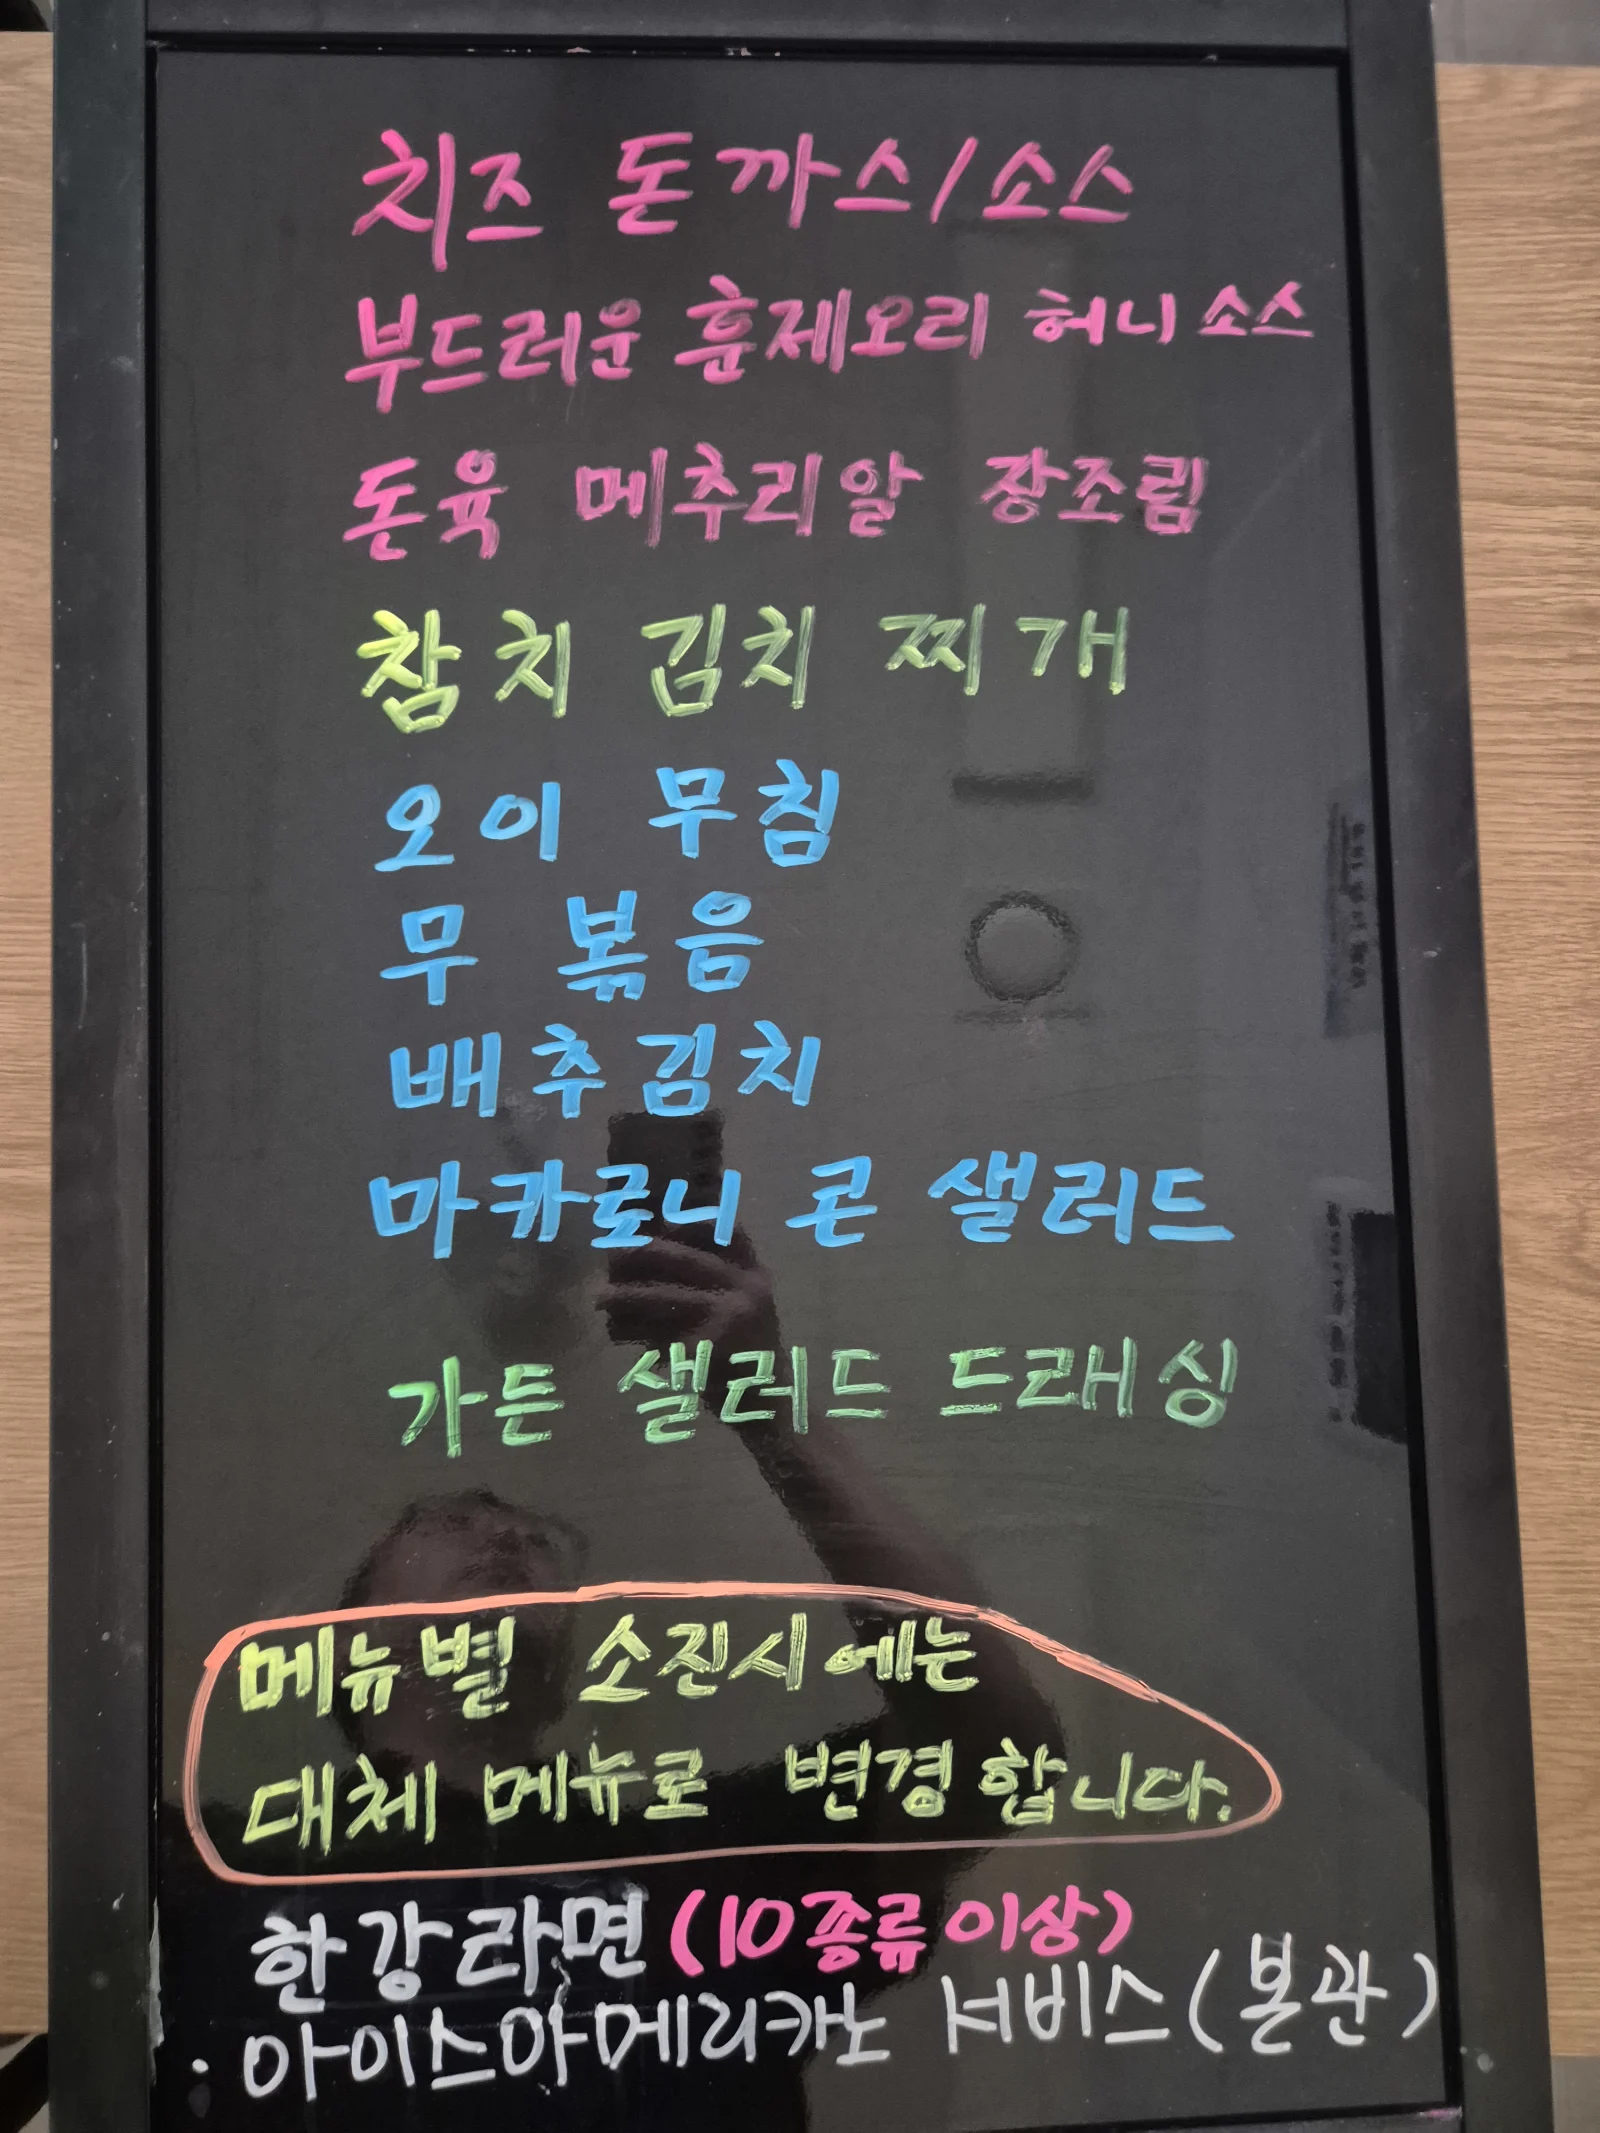 치즈 돈까스/소스
부드러운 훈제오리 허니 소스
돈육 메추리알 장조림
참치 김치 찌개
오이 무침
무 볶음
배추김치
마카로니 콘 샐러드
가든 샐러드 드래싱
메뉴별 소진시에는
대체 메뉴로 변경합니다.
한강라면 (10종류이상)
· 아이스아메리카노 서비스(본관)